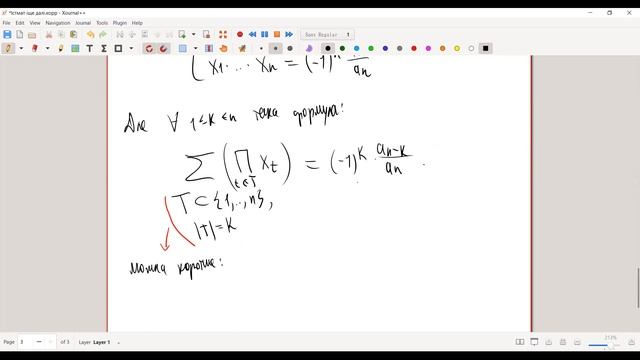 *істмат іще далі.xopp - Xournal++
File Edit View Navigation Journal Tools Plugin Help
Sans Regular 1
x₁ ... xₙ = (-1)ⁿ /aₙ
Для ∀ 1≤k≤n така формула:
∑ (∏ xₜ) = (-1)ᵏ · aₙ₋ₖ/aₙ .
t∈T
T ⊂ {1,..,n},
|T|=k
можна коротше:
Page 3 of 3 Layer Layer 1
213%